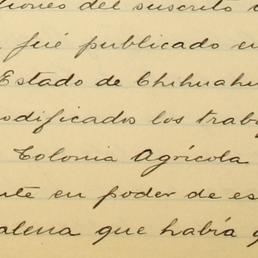 ciones del suscrito
fué publicado en
Estado de Chihuahu
odificados los trab
Colonia Agrícola
nte en poder de es
alena que había